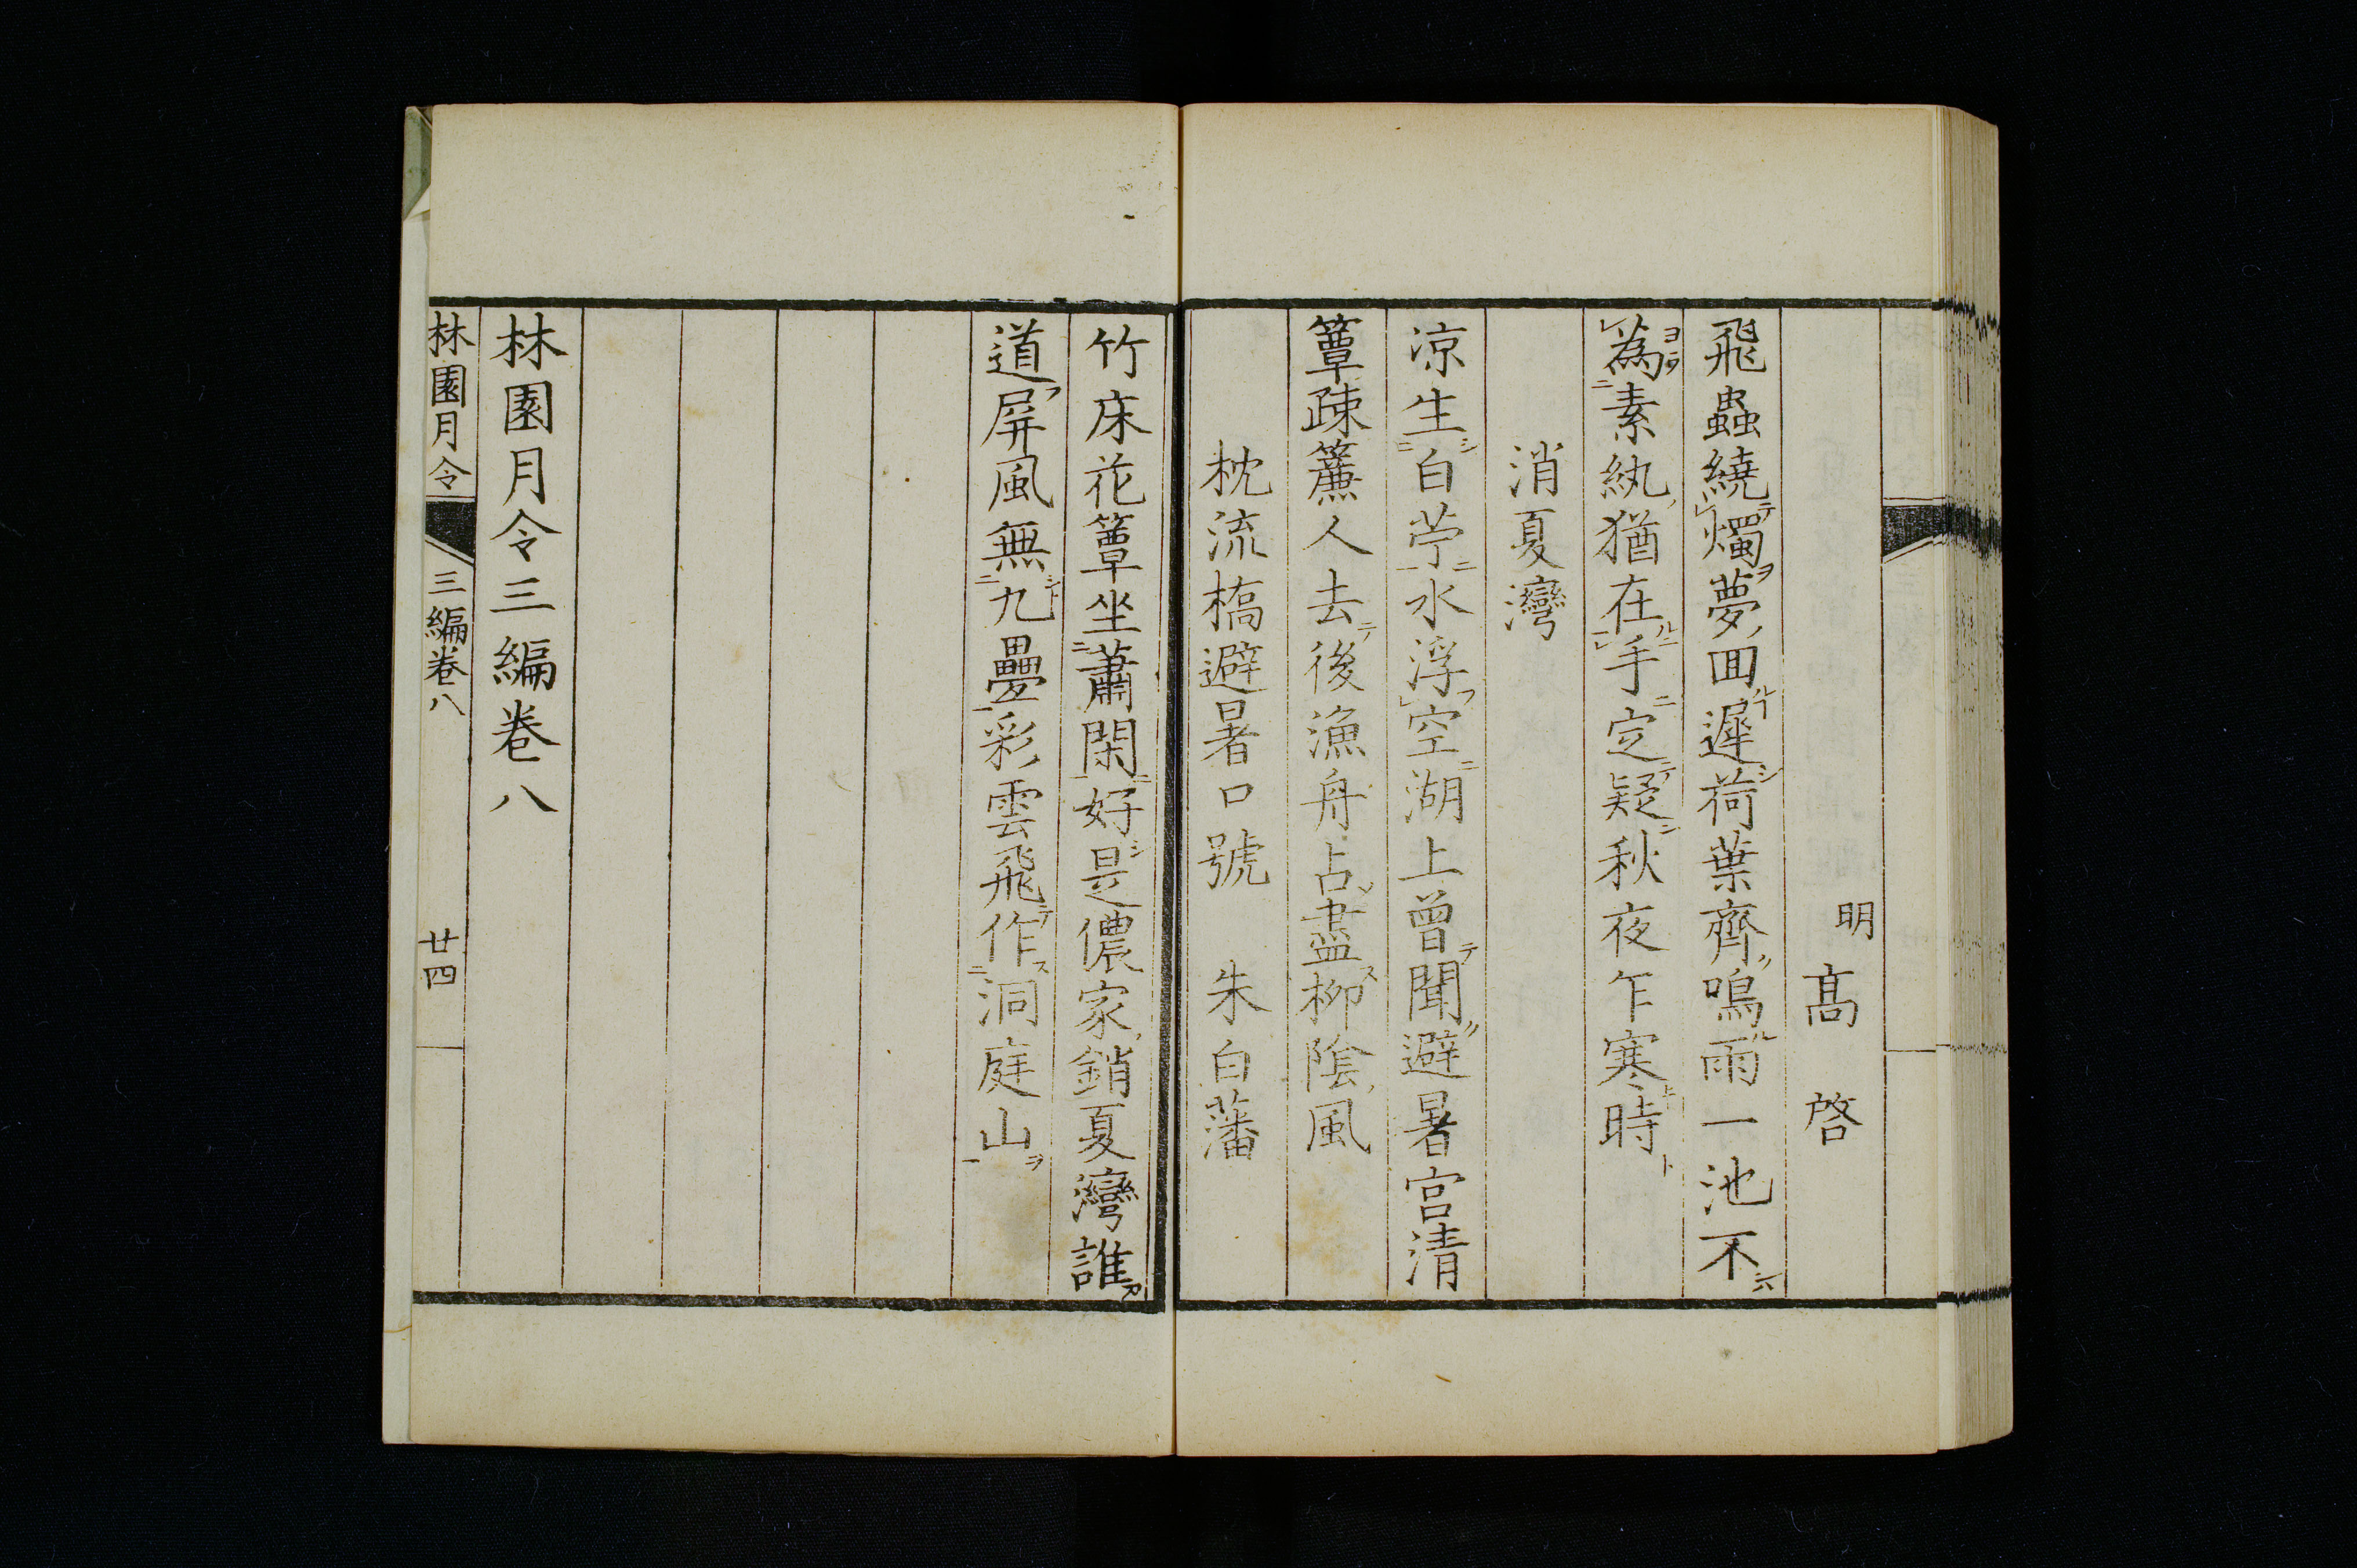 明 高 啓
飛蟲繞燭夢回遲荷葉齊鳴雨一池不
為素紈猶在手定疑秋夜乍寒時
消夏灣
涼生白苧水浮空湖上曾聞避暑宮清
簟疎簾人去後漁舟占盡柳陰風
枕流橋避暑口號 朱白藩
竹床花簟坐蕭閑好是儂家銷夏灣誰
道屏風無九疊彩雲飛作洞庭山
林園月令三編卷八
林園月令 三編卷八 廿四